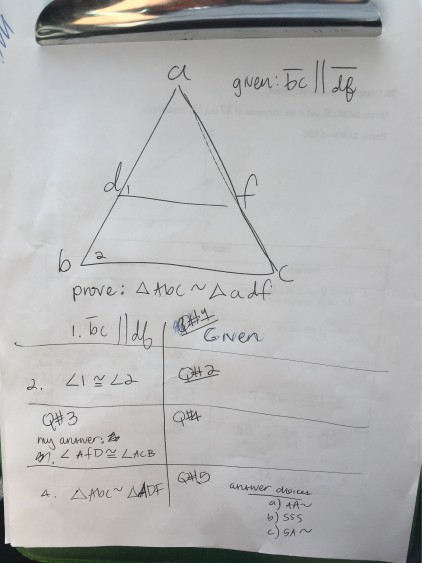 a
given: bc || df
d
1
f
b
2
c
prove: △Abc ~ △adf
1. bc || df
Q#1
Given
2. ∠1 ≅ ∠2
Q#2
Q#3
Q#4
my answer:
∠AfD ≅ ∠ACB
4. △Abc ~ △ADF
Q#5
answer choices
a) AA~
b) SSS
c) SA~